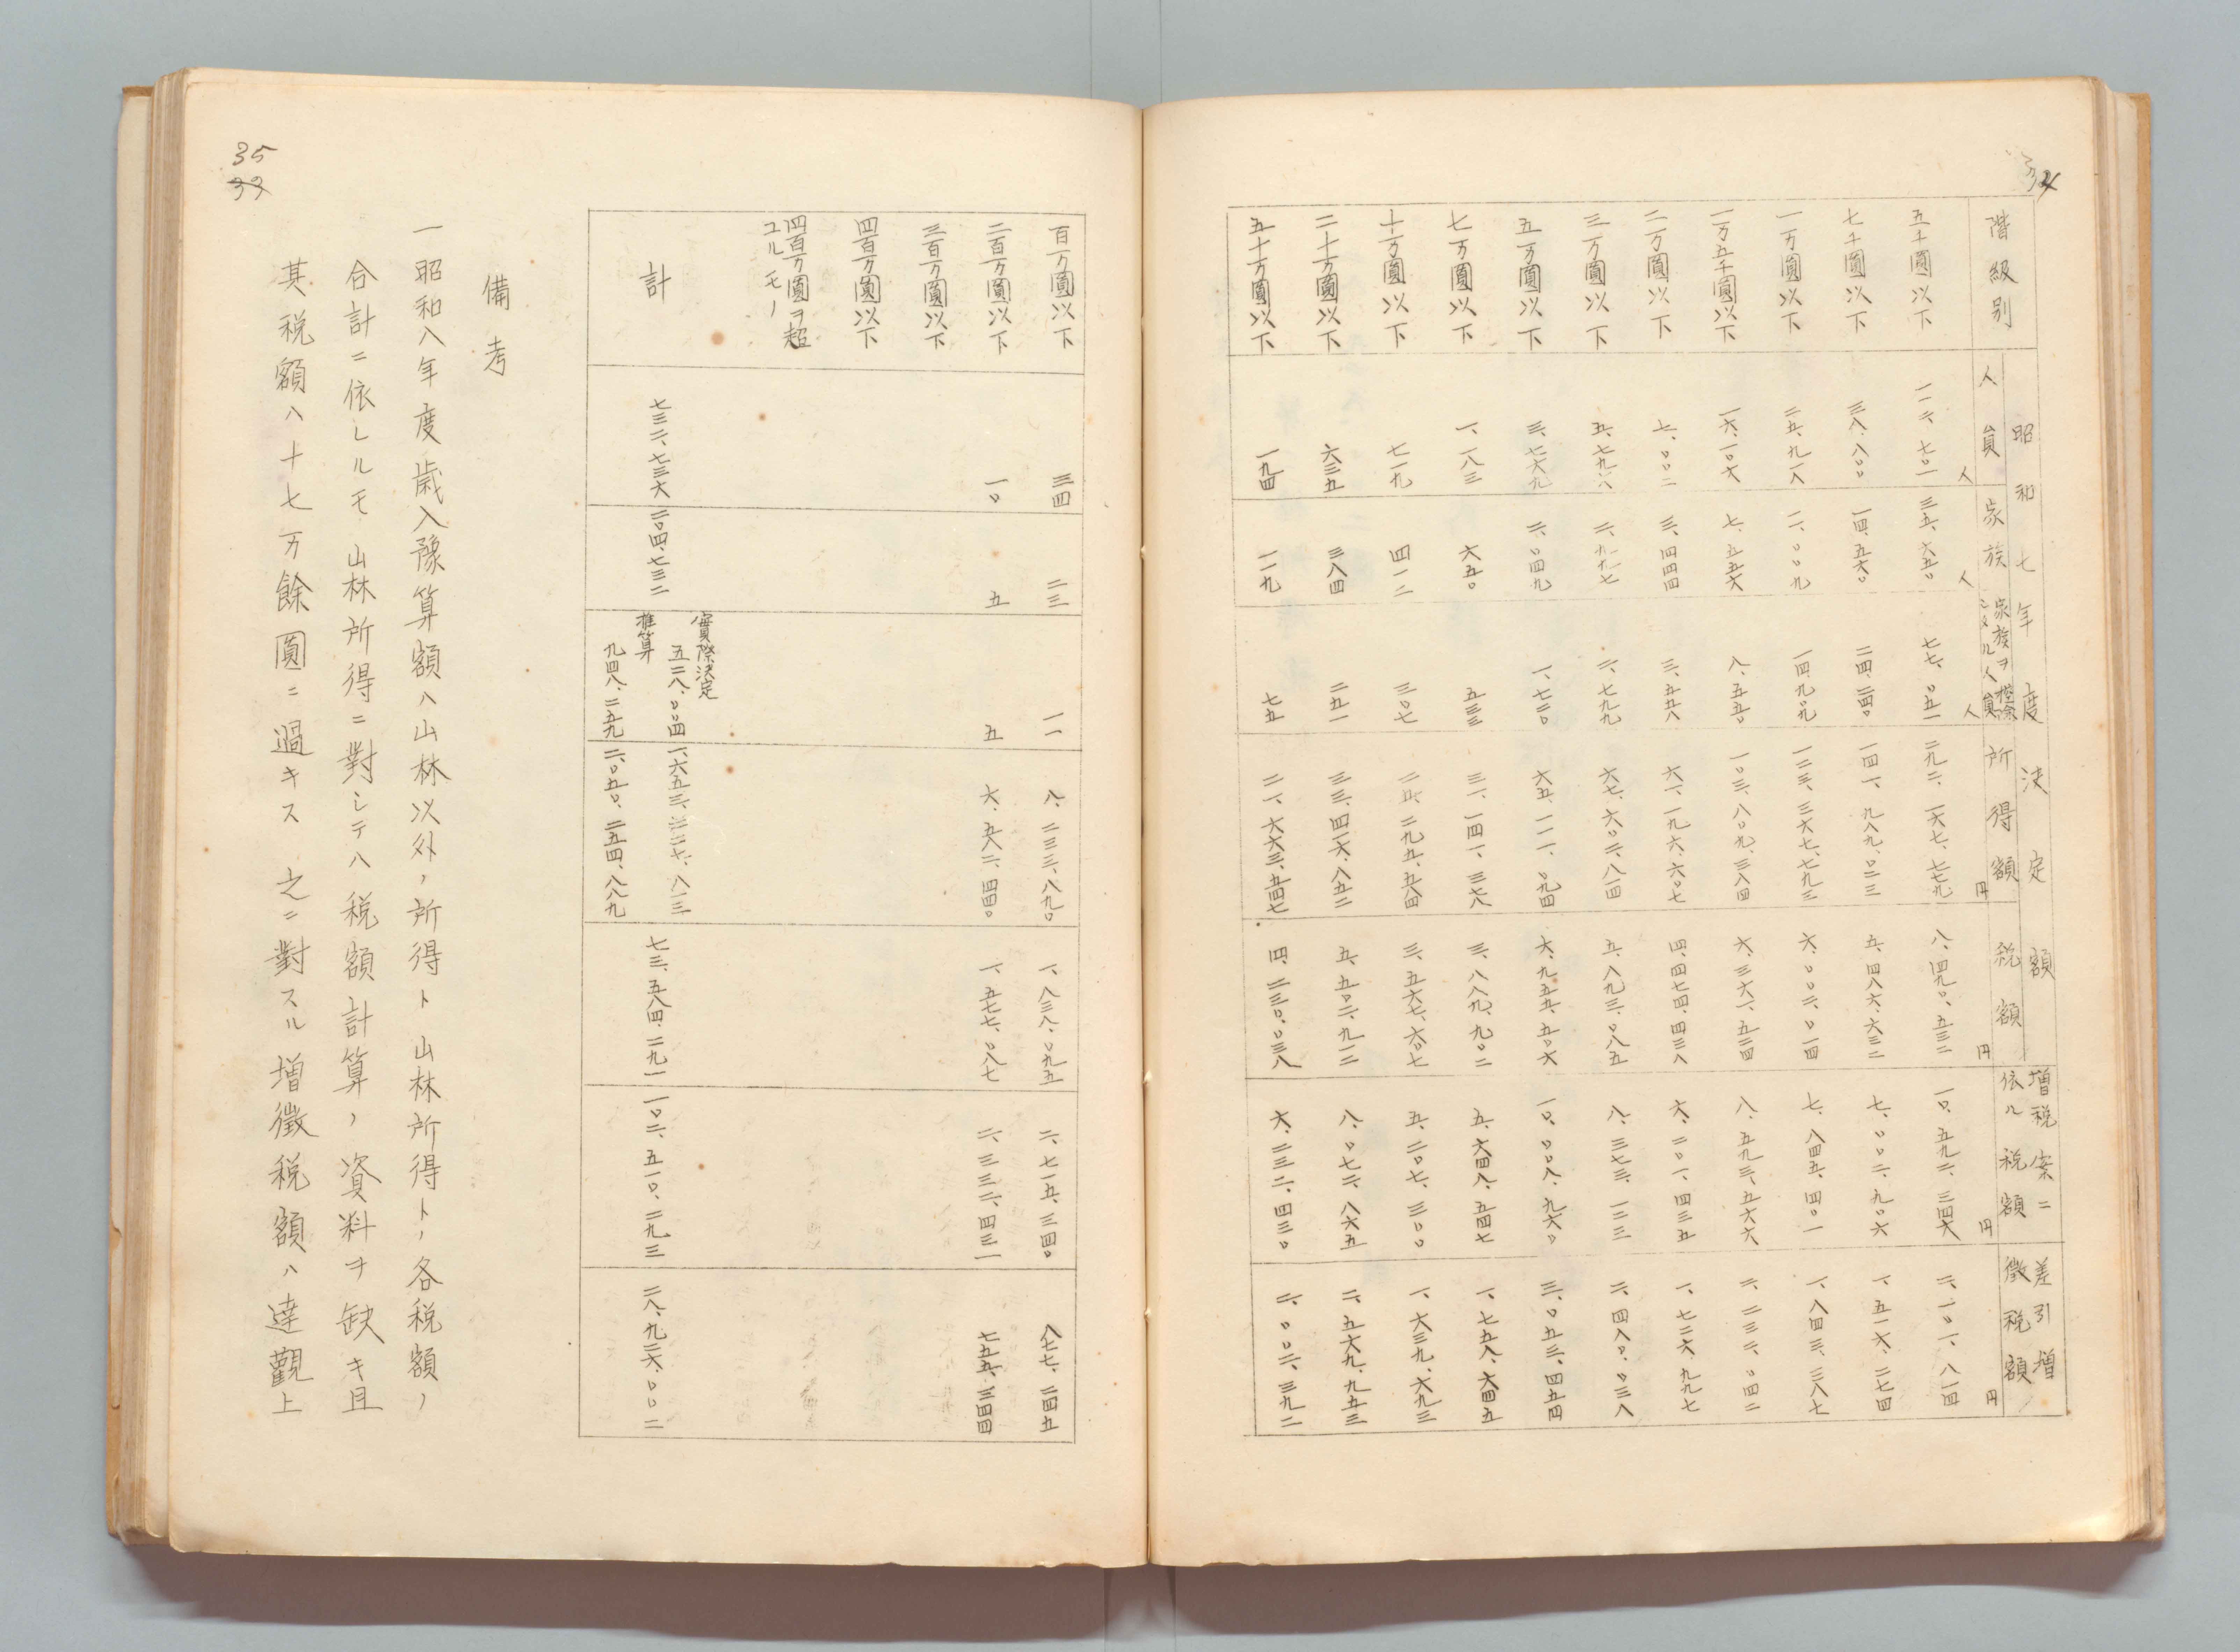 34
階級別
昭和七年度決定額
人員
人
家族
人
家族ヲ控除
シタル人員
人
所得額
円
税額
円
増税案ニ
依ル税額
円
差引増
徴税額
円
五千圓以下 一一二、七〇一 三五、六五〇 七七、〇五一 二九二、一六七、七七九 八、四九〇、五三二 一〇、五九二、三四六 二、一〇一、八一四
七千圓以下 三八、八〇〇 一四、五六〇 二四、二四〇 一四一、九八九、〇二三 五、四八六、六三二 七、〇〇二、九〇六 一、五一六、二七四
一万圓以下 二五、九一八 一一、〇〇九 一四、九〇九 一二三、三六七、七九三 六、〇〇二、〇一四 七、八四五、四〇一 一、八四三、三八七
一万五千圓以下 一六、一〇六 七、五五六 八、五五〇 一〇三、八〇九、三八四 六、三六一、五二四 八、五九三、五六六 二、二三二、〇四二
二万圓以下 七、〇〇二 三、四四四 三、五五八 六一、一九六、六〇七 四、四七四、四三八 六、二〇一、四三五 一、七二六、九九七
三万圓以下 五、七九六 二、九九七 二、七九九 六七、六〇二、八一四 五、八九三、〇八五 八、三七三、一二三 二、四八〇、〇三八
五万圓以下 三、七六九 二、〇四九 一、七二〇 六五、一一一、〇九四 六、九五五、五〇六 一〇、〇〇八、九六〇 三、〇五三、四五四
七万圓以下 一、一八三 六五〇 五三三 三一、一四一、三七八 三、八八九、九〇二 五、六四八、五四七 一、七五八、六四五
十万圓以下 七一九 四一二 三〇七 二五、二九五、五八四 三、五六七、六〇七 五、二〇七、三〇〇 一、六三九、六九三
二十万圓以下 六三五 三八四 二五一 三三、四一六、八五二 五、五〇二、九一二 八、〇七二、八六五 二、五六九、九五三
五十万圓以下 一九四 一一九 七五 二一、六六三、五四七 四、二三〇、〇三八 六、二三二、四三〇 二、〇〇二、三九二
35
33
百万圓以下 三四 二三 一一 八、二三三、八九〇 一、八三八、〇九五 二、七一五、三四〇 八七七、二四五
二百万圓以下 一〇 五 五 六、五八二、四四〇 一、五七七、〇八七 二、三三二、四三一 七五五、三四四
三百万圓以下
四百万圓以下
四百万圓ヲ超
ユルモノ
計 七三二、七三六 二〇四、七三二
實際決定
五二八、〇〇四 一、六五三、二二七、八一三
推算
九四八、二五九 二、〇五〇、二五四、八八九
七三、五八四、二九一 一〇二、五一〇、二九三 二八、九二六、〇〇二
備考
一昭和八年度歳入豫算額ハ山林以外ノ所得ト山林所得トノ各税額ノ
合計ニ依レルモ山林所得ニ對シテハ税額計算ノ資料ヲ缺キ且
其税額ハ十七万餘圓ニ過キス之ニ對スル増徴税額ハ達觀上